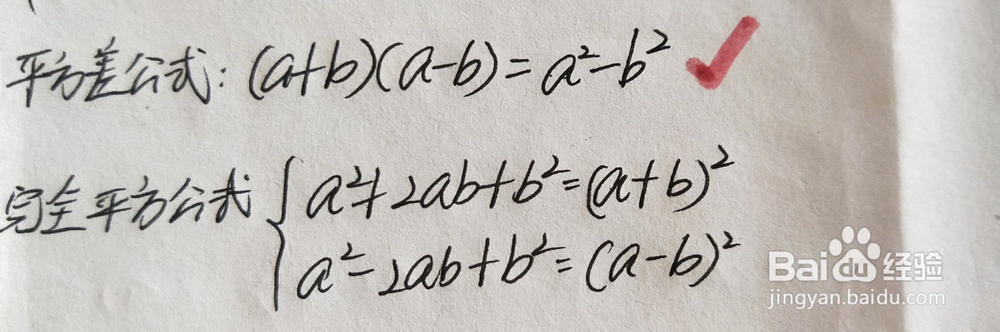 平方差公式: (a+b)(a-b)=a²-b²
完全平方公式 { a²+2ab+b²=(a+b)²
a²-2ab+b²=(a-b)²
Baidu 经验
jingyan.baidu.com